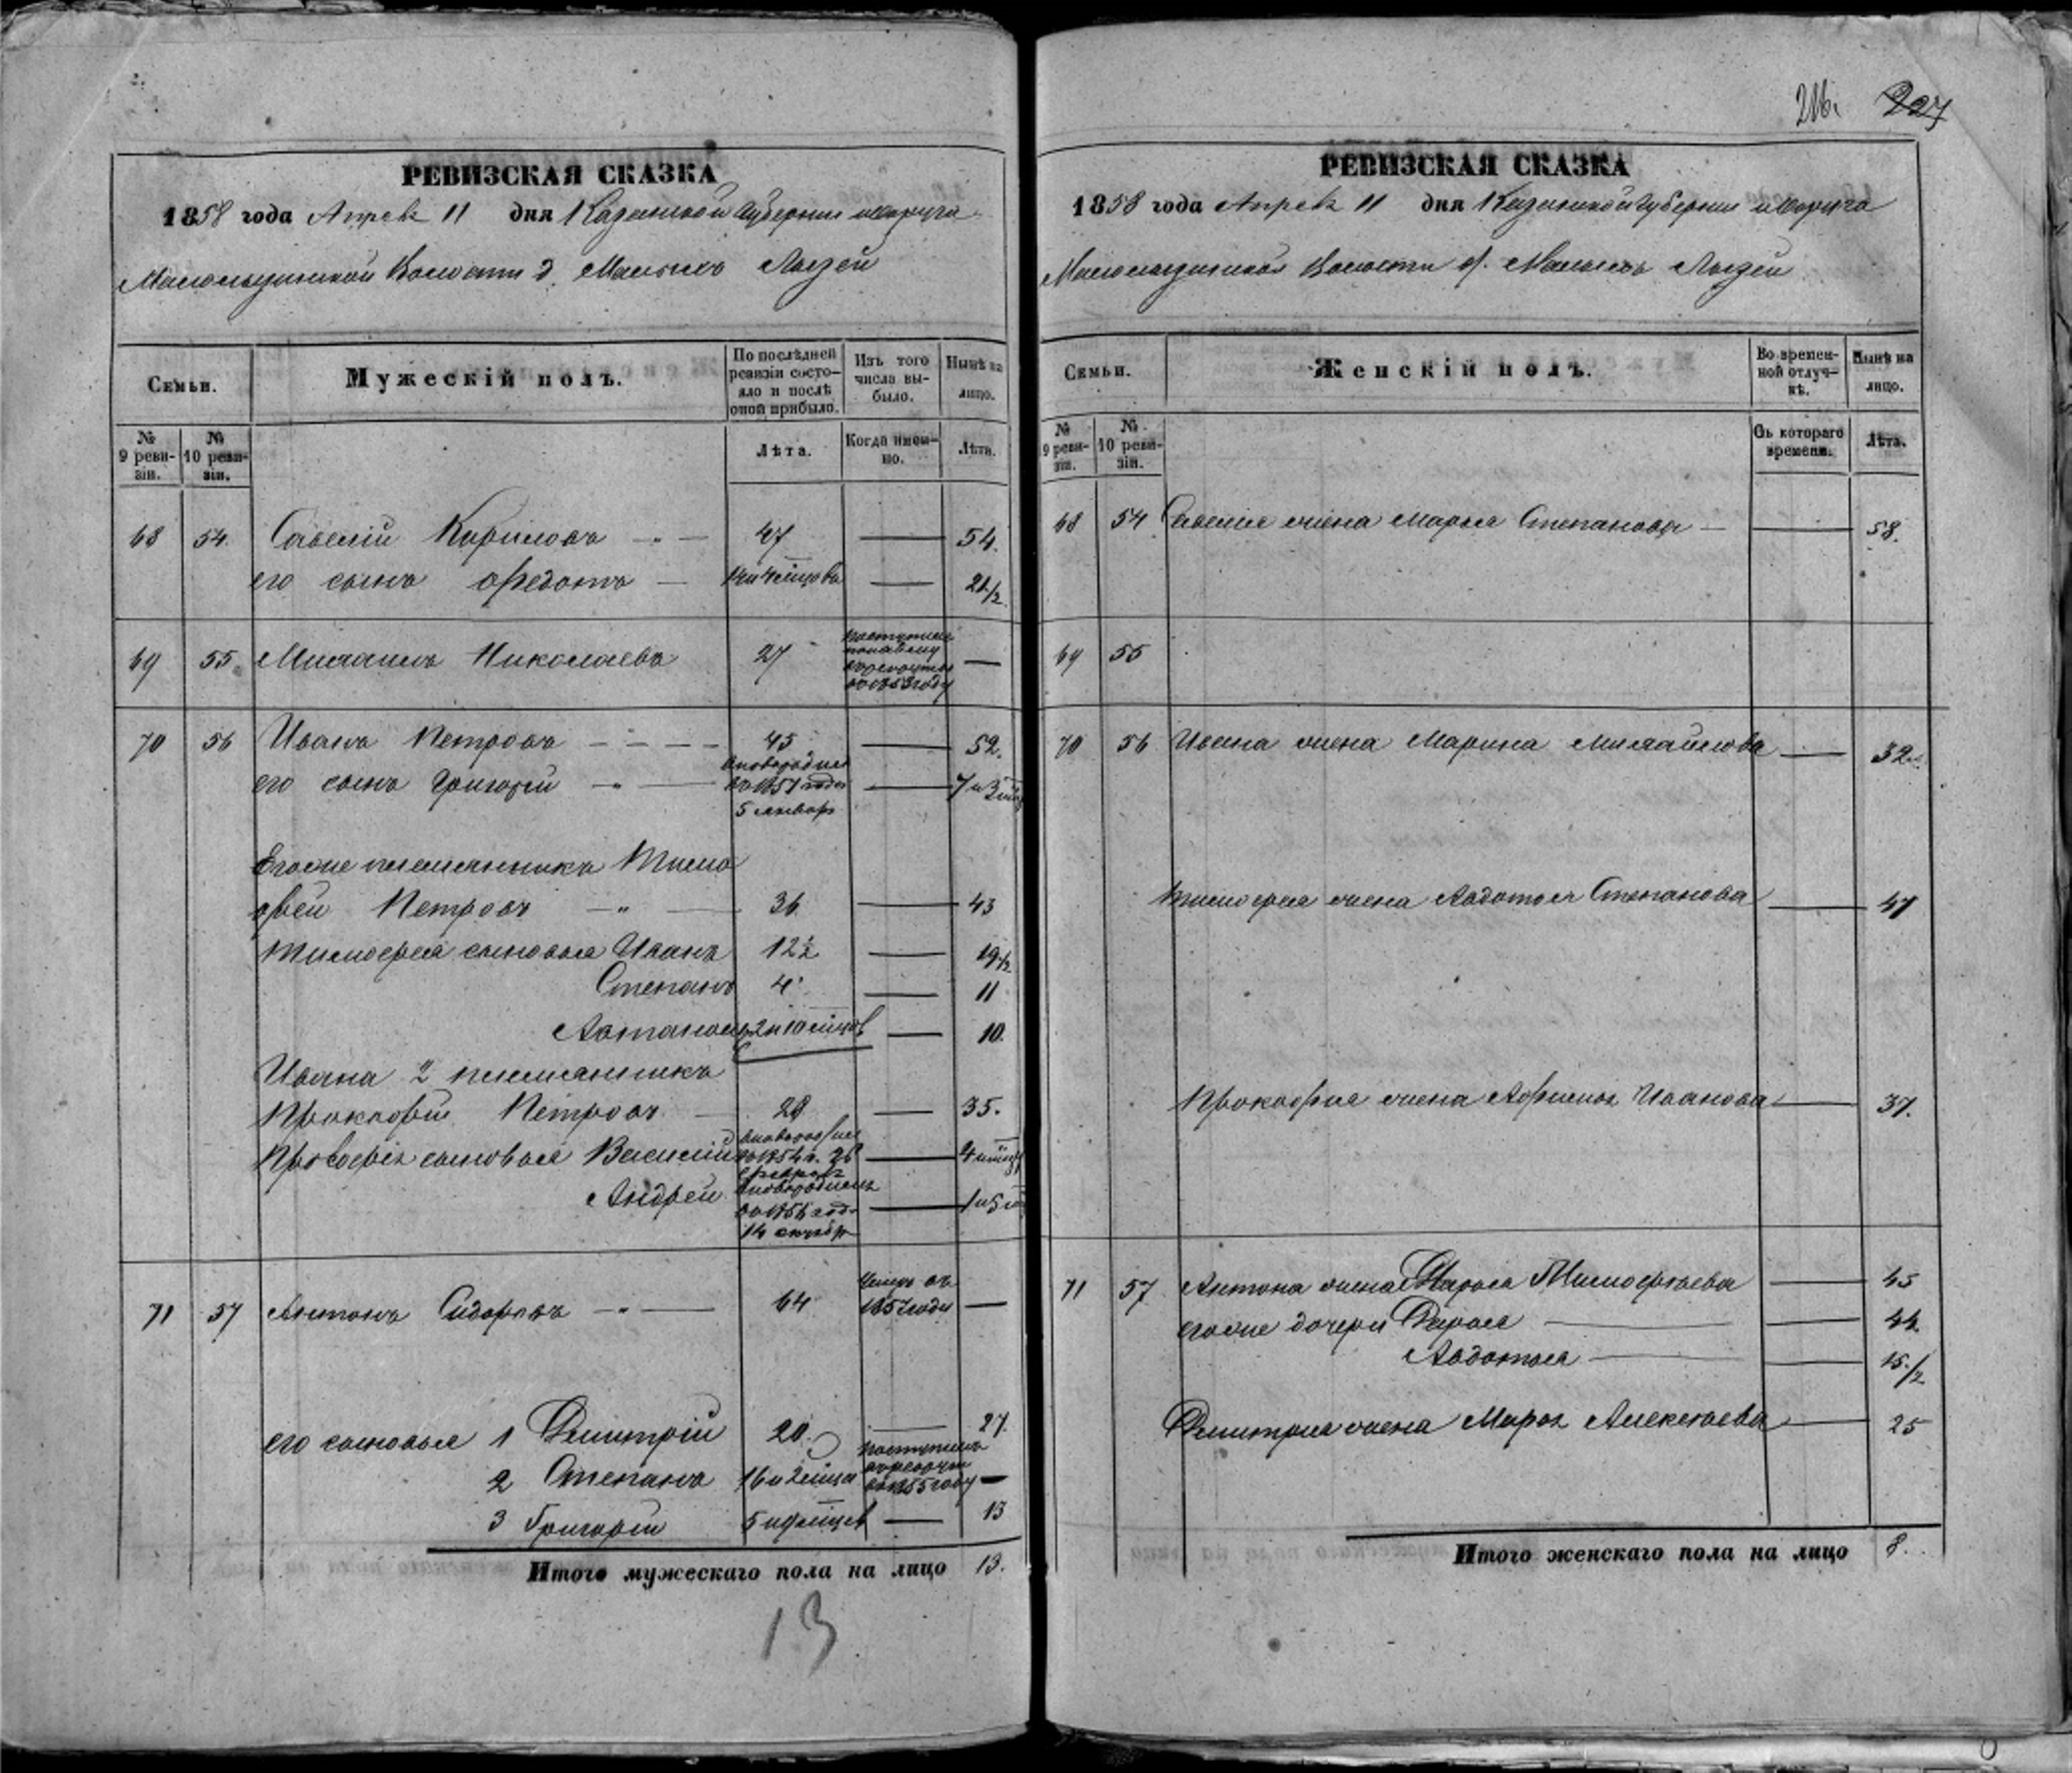 216. 227
РЕВИЗСКАЯ СКАЗКА
1858 года Апреля 11 дня Казанской Губернии и округа
Малолызинской Волости д. Малыхъ Лызей
Семьи.
Мужескій полъ.
По послѣдней ревизіи состо-
яло и послѣ
оной прибыло.
Изъ того
числа вы-
было.
Нынѣ на
лицо.
№
9 реви-
зіи.
№
10 реви-
зіи.
Лѣта.
Когда имен-
но.
Лѣта.
68 54 Савелій Кириловъ 47 — 54.
его сынъ Федотъ 14 и 4 мѣцовъ — 21 1/2
69 55 Михаилъ Николаевъ 27 поступилъ в рекруты въ 1853 году —
70 56 Иванъ Петровъ 45 — 52.
его сынъ Григорій вновь родился въ 1851 года 5 январ — 7 и 3 мѣс
Его же племянникъ Тимо
фей Петровъ 36 — 43
Тимофея сыновья Иванъ 12 1/2 — 19 1/2
Степанъ 4 — 11
Автаномъ 2 и 10 мѣцов — 10.
Ивана 2 племянникъ
Прокофій Петровъ 28 — 35.
Прокофія сыновья Василій вновь родился въ 1854 г. 26 февраля —
Андрей вновь родился въ 1856 год 14 октябр — 1 и 5 мѣ
71 57 Антонъ Сидоровъ 64 умеръ въ 1857 году —
его сыновья 1 Дмитрій 20 — 27.
2 Степанъ 16 и 2 мѣца поступилъ в рекруты въ 1855 году —
3 Григорій 5 и 9 мѣцев — 13
Итого мужескаго пола на лицо 13.
13
РЕВИЗСКАЯ СКАЗКА
1858 года Апреля 11 дня Казанской Губернии и округа
Малолызинской Волости д. Малыхъ Лызей
Семьи.
Женскій полъ.
Во времен-
ной отлуч-
кѣ.
Нынѣ на
лицо.
№
9 реви-
зіи.
№
10 реви-
зіи.
Съ котораго
времени.
Лѣта.
68 54 Савелія жена Марья Степанова — 58.
69 55
70 56 Ивана жена Марина Михайлова — 32.
Тимофея жена Авдотья Степанова — 47
Прокофия жена Афимья Иванова — 37.
71 57 Антона жена Марья Тимофѣева — 45
его же дочери Дарья — 44
Авдотья — 15 1/2
Дмитрия жена Марья Алексѣева — 25
Итого женскаго пола на лицо 8.